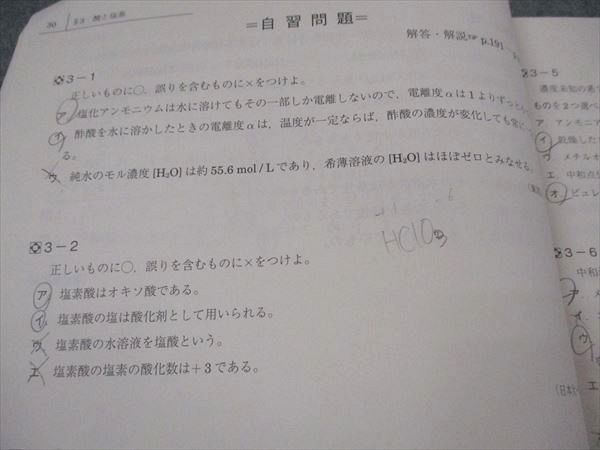 30 §3 酸と塩基
＝自 習 問 題＝
解答・解説☞ p.191
3－1
正しいものに○，誤りを含むものに×をつけよ。
ア 塩化アンモニウムは水に溶けてもその一部しか電離しないので，電離度αは1よりずっと
イ 酢酸を水に溶かしたときの電離度αは，温度が一定ならば，酢酸の濃度が変化しても常に
る。
ウ 純水のモル濃度 [H₂O] は約 55.6 mol/L であり，希薄溶液の [H₂O] はほぼゼロとみなせる。
HClO₃
3－2
正しいものに○，誤りを含むものに×をつけよ。
ア 塩素酸はオキソ酸である。
イ 塩素酸の塩は酸化剤として用いられる。
ウ 塩素酸の水溶液を塩酸という。
エ 塩素酸の塩素の酸化数は＋3である。
3－5
濃度未知の希
ものを2つ選べ
ア．アンモニア
イ．乾燥した
ウ．メチルオ
エ．中和点
オ．ビュレ
3－6
中和
ア
イ
ウ
エ